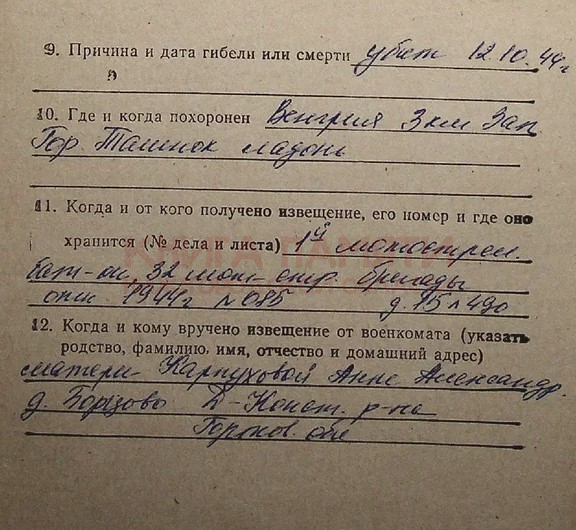 9. Причина и дата гибели или смерти убит 12.10.44г
10. Где и когда похоронен Венгрия 3 км Зап
Гор. Ташнок ладонь
11. Когда и от кого получено извещение, его номер и где оно
хранится (№ дела и листа) 1й мотострел.
бат-он, 32 мот- стр. бригады
1944г №085 д. 15 л 490
КНИГА ПАМЯТИ
12. Когда и кому вручено извещение от военкомата (указать
родство, фамилию, имя, отчество и домашний адрес)
матери Карпуховой Анне Александр.
д. Борзово Д-Конст. р-на
Горьков. обл